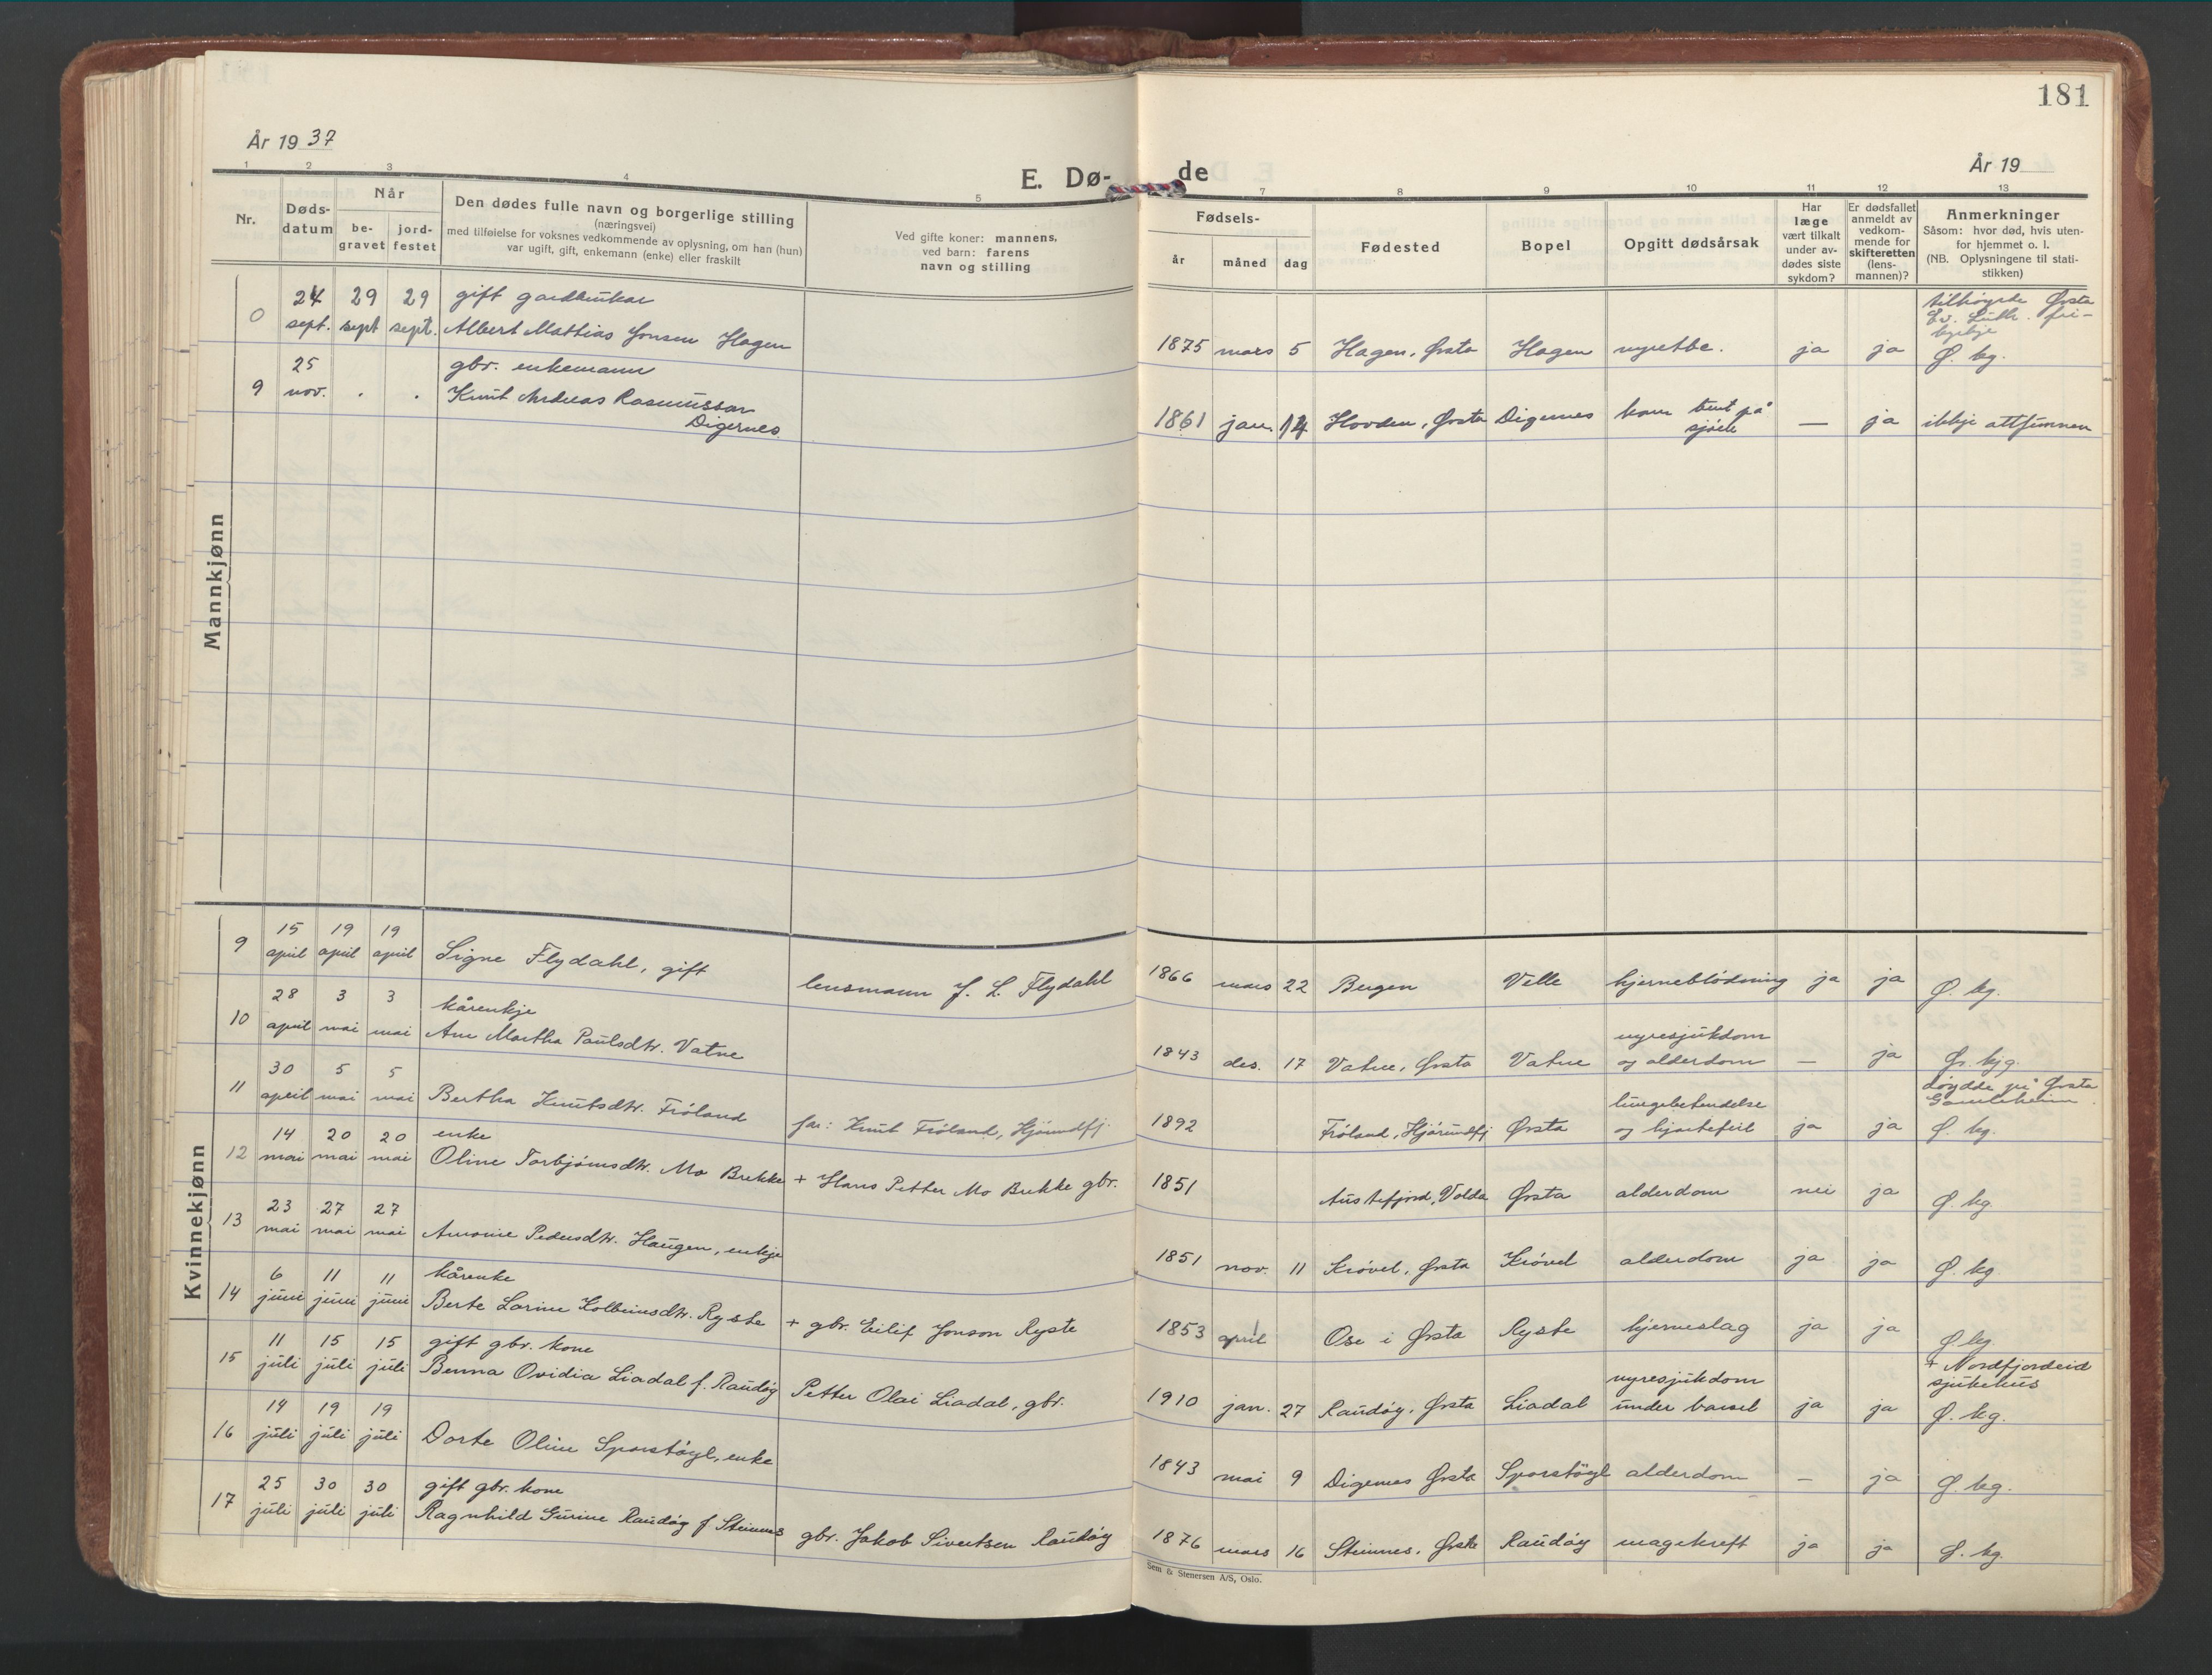 181
År 1937
År 19
E. Dø-
de
1 2 3 4 5 7 8 9 10 11 12 13
Nr.
Døds-
datum
Når
be-
gravet
jord-
festet
Den dødes fulle navn og borgerlige stilling
(næringsvei)
med tilføielse for voksnes vedkommende av oplysning, om han (hun)
var ugift, gift, enkemann (enke) eller fraskilt
Ved gifte koner: mannens,
ved barn: farens
navn og stilling
Fødsels-
år måned dag
Fødested
Bopel
Opgitt dødsårsak
Har
læge
vært tilkalt
under av-
dødes siste
sykdom?
Er dødsfallet
anmeldt av
vedkom-
mende for
skifteretten
(lens-
mannen)?
Anmerkninger
Såsom: hvor død, hvis uten-
for hjemmet o. l.
(NB. Oplysningene til stati-
stikken)
Mannkjønn
24 29 29 gift gardbrukar
0 sept. sept sept. Albert Mattias Jonsen Hagen
tilhøyrde Ørsta
Ev. Luth. fri-
kyrkje
1875 mars 5 Hagen, Ørsta Hagen nyretbc. ja ja Ø. kg.
25 gbr. enkemann
9 nov. . . Knut Andreas Rasmussen
Digernes
1861 jan. 14 Hovden, Ørsta Digernes kom burt på
sjøen — ja ikkje attfunnen
Kvinnekjønn
15 19 19
9 april april april Signe Flydahl, gift lensmann J. L. Flydahl
1866 mars 22 Bergen Velle hjerneblödning ja ja Ø. kg.
28 3 3 kårenkje
10 april mai mai Ane Martha Paulsdtr. Vatne
nyresjukdom
1843 des. 17 Vatne, Ørsta Vatne og alderdom — ja Ør. kjg.
30 5 5
11 april mai mai Bertha Knutsdtr. Fröland far: Knut Fröland, Hjörundfj.
lungebetendelse Döydde på Ørsta
Gamleheim.
1892 Fröland, Hjörundfj Ørsta og hjartefeil ja ja Ø. kg.
14 20 20 enke
12 mai mai mai Oline Torbjörnsdtr. Mo Brekke + Hans Petter Mo Brekke gbr.
1851 Austefjord, Volda Ørsta alderdom nei ja Ø. kg.
23 27 27
13 mai mai mai Amonie Pedersdtr. Haugen, enkje
1851 nov. 11 Krövel, Ørsta Krövel alderdom ja ja Ø. kg.
6 11 11 kårenke
14 juni juni juni Berte Larine Kolbeinsdtr. Ryste + gbr. Eilif Jonson Ryste
1853 april 1 Ose i Ørsta Ryste hjerneslag ja ja Ø kg.
11 15 15 gift gbr. kone
15 juli juli juli Benna Ovidia Liadal f. Raudöy Petter Olai Liadal, gbr.
nyresjukdom + Nordfjordeid
sjukehus
1910 jan. 27 Raudöy, Ørsta Liadal under barsel ja ja Ø. kg.
14 19 19
16 juli juli juli Dorte Oline Sporstöyl, enke
1843 mai 9 Digernes Ørsta Sporstöyl alderdom — ja Ø. kg.
25 30 30 gift gbr. kone
17 juli juli juli Ragnhild Gurine Raudöy f Steinnes gbr. Jakob Sivertsen Raudöy
1876 mars 16 Steinnes, Ørsta Raudöy magekreft ja ja Ø. kg.
Sem & Stenersen A/S, Oslo.